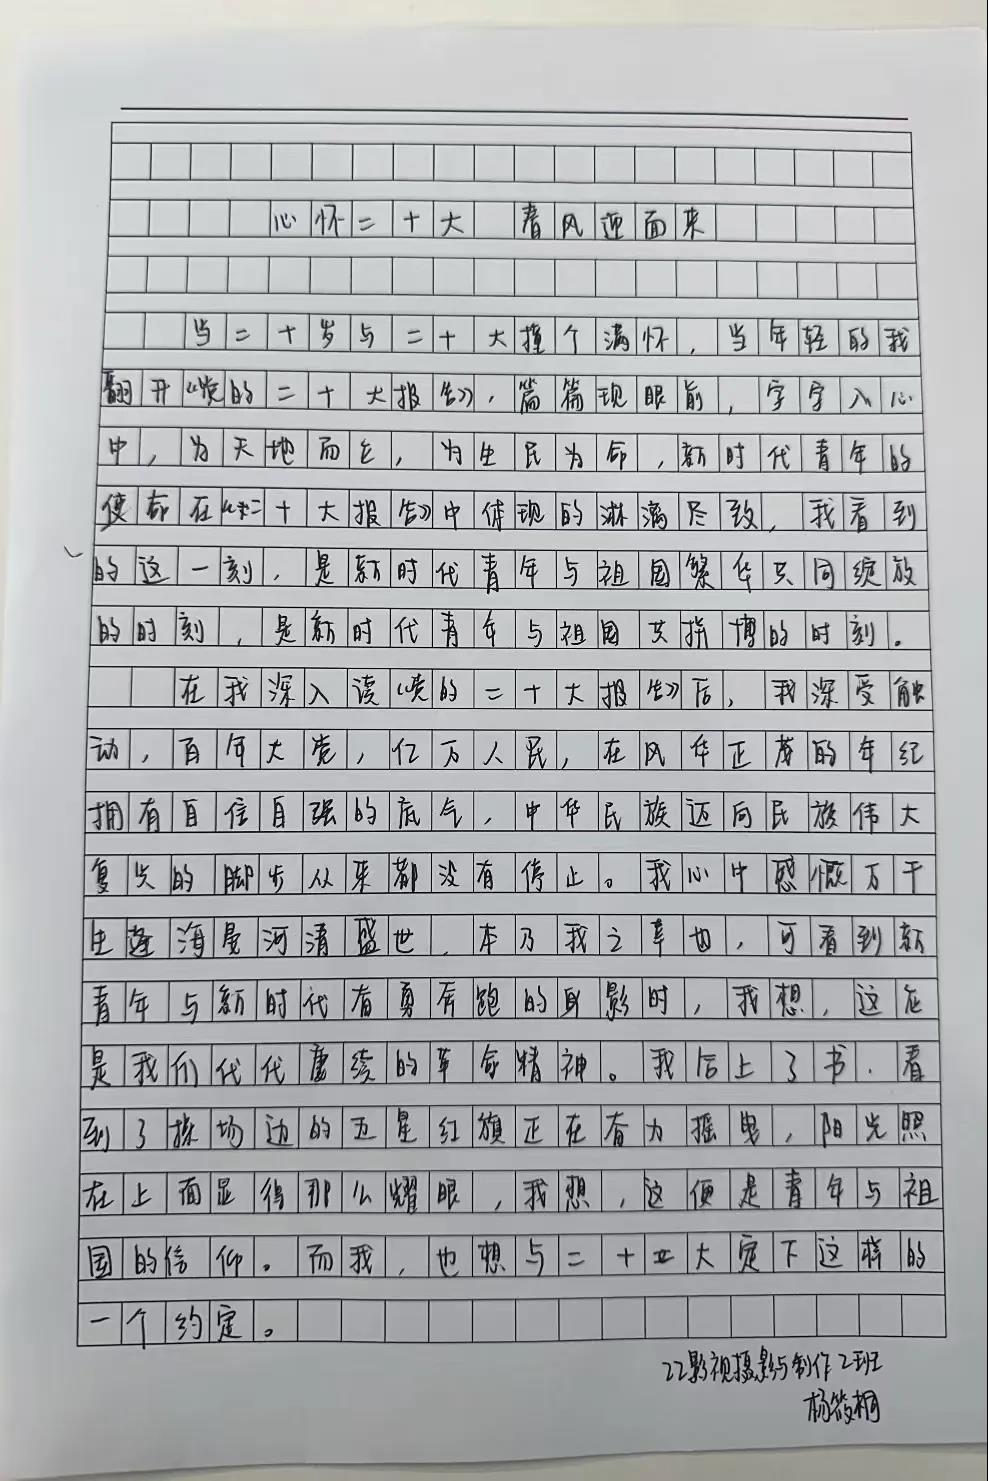 心怀二十大 春风迎面来
当二十岁与二十大撞个满怀，当年轻的我
翻开《党的二十大报告》，篇篇现眼前，字字入心
中，为天地而立，为生民为命，新时代青年的
使命在《二十大报告》中体现的淋漓尽致，我看到
的这一刻，是新时代青年与祖国繁华共同绽放
的时刻，是新时代青年与祖国共拼博的时刻。
在我深入读《党的二十大报告》后，我深受触
动，百年大党，亿万人民，在风华正茂的年纪
拥有自信自强的底气，中华民族迈向民族伟大
复兴的脚步从来都没有停止。我心中感慨万千
生逢海晏河清盛世，本乃我之幸也，可看到新
青年与新时代奋勇奔跑的身影时，我想，这在
是我们代代赓续的革命精神。我合上了书，看
到了操场边的五星红旗正在奋力摇曳，阳光照
在上面显得那么耀眼，我想，这便是青年与祖
国的信仰。而我，也想与二十大定下这样的
一个约定。
22影视摄影与制作2班
杨筱桐